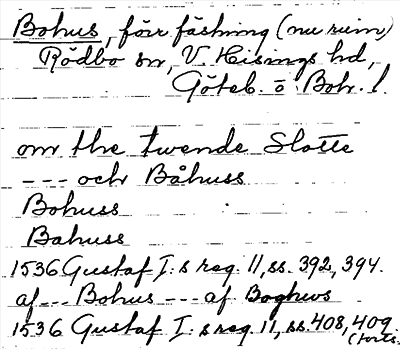 Bohus, förr fästning (nu ruin)
Rödbo sn, V. Hisings hd,
Göteb. o. Boh. l.
om the twende Slotte
--- och Båhuss
Bohuss
Bahuss
1536 Gustaf I:s reg. 11, ss. 392, 394.
af --- Bohus --- af Boghws
1536 Gustaf I:s reg. 11, ss. 408, 409.
(forts.